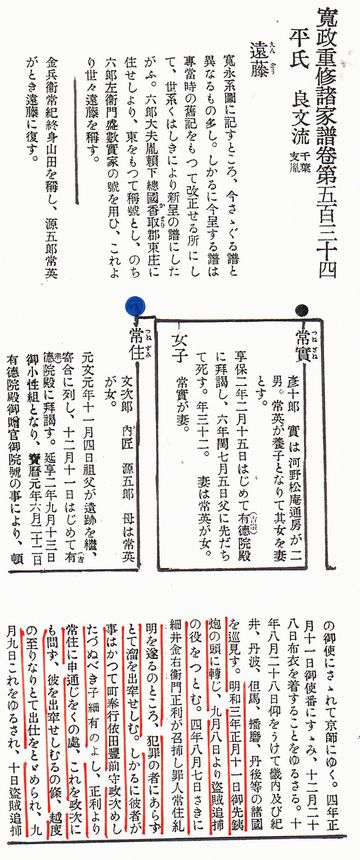 寬政重修諸家譜卷第五百三十四
平氏 良文流 千葉支胤
遠藤
寬永系圖に記すところ、今さゝぐる譜と
異なるもの多し。しかるに今呈する譜は
專當時の舊記をもつて改正せる所にし
て、世系くはしきにより新呈の譜にした
がふ。六郎大夫胤賴下總國香取郡東庄に
住せしより、東をもつて稱號とし、のち
六郎左衞門盛數實家の號を用ひ、これよ
り世々遠藤を稱す。
金兵衞常紀終身山田を稱し、源五郎常英
がとき遠藤に復す。
常實
彥十郎 實は河野松庵通房が二
男。常英が養子となりて其女を妻
とす。
享保二年二月十五日はじめて有德院殿
に拜謁し、六年閏七月五日父に先だち
て死す。年三十二。 妻は常英が女。
女子
常實が妻。
常住
文次郎 內匠 源五郎 母は常英
が女。
元文元年十一月四日祖父が遺跡を繼、
寄合に列し、十二月十一日はじめて有
德院殿に拜謁す。延享二年九月十三日
御小性組となり、寶曆元年六月二十二日
有德院殿御贈官御院號の事により、頓
の御使にさゝれて京師にゆく。四年正
月十一日御使番にすゝみ、十二月二十
八日布衣を着することをゆるさる。十
年八月二十八日仰をうけて畿內及び紀
井、丹波、但馬、播磨、丹後等の諸國
を巡見す。明和三年正月十一日御先鐵
炮の頭に轉じ、九月八日より盜賊追捕
の役をつとむ。四年八月七日さきに
細井金右衞門正利が召捕し罪人常住糺
明を遂るのところ、犯罪の者にあらず
とて溜を出牢せしむ。しかるに彼者が
事はかつて町奉行依田豐前守政次めし
たづぬべき子細有のよし、正利より
常住に申通じをくの處、これを政次に
も問す、彼を出牢せしむるの條、越度
の至りなりとて出仕をとゞめられ、九
月九日これをゆるされ、十日盜賊追捕